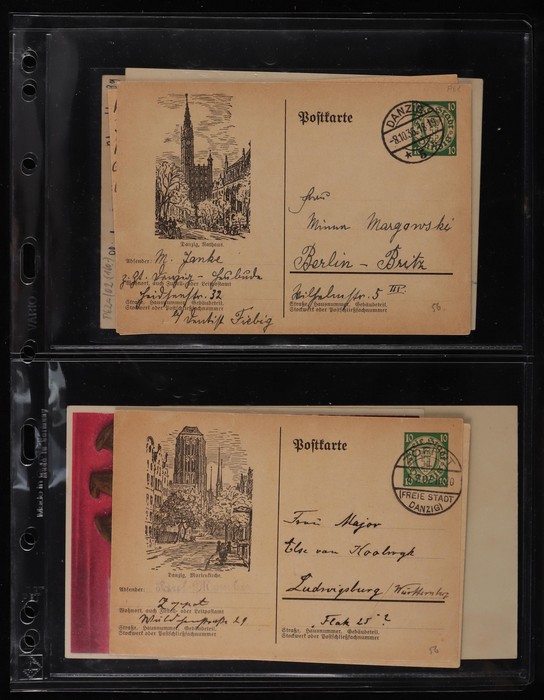 Postkarte
DANZIG
10 10
Danzig, Rathaus.
Absender: M. Janke
z. Zt. Danzig - Heubude
Wohnort, auch Zustell- oder Leitpostamt
Heidseestr. 32
Straße, Hausnummer, Gebäudeteil,
Stockwerk oder Postschließfachnummer
b/ Dentist Fiebig
Frau
Minna Margowski
Berlin - Britz
Wilhelmstr. 5 III
56.
VARIO
Made in Germany
Postkarte
10 10
10 10
(FREIE STADT
DANZIG)
Danzig, Marienkirche.
Absender:
Zoppot
Wohnort, auch Zustell- oder Leitpostamt
29
Straße, Hausnummer, Gebäudeteil,
Stockwerk oder Postschließfachnummer
Frau Major
Else van
Ludwigsburg /Württemberg
"Flak 25"?
Straße, Hausnummer, Gebäudeteil,
Stockwerk oder Postschließfachnummer
56